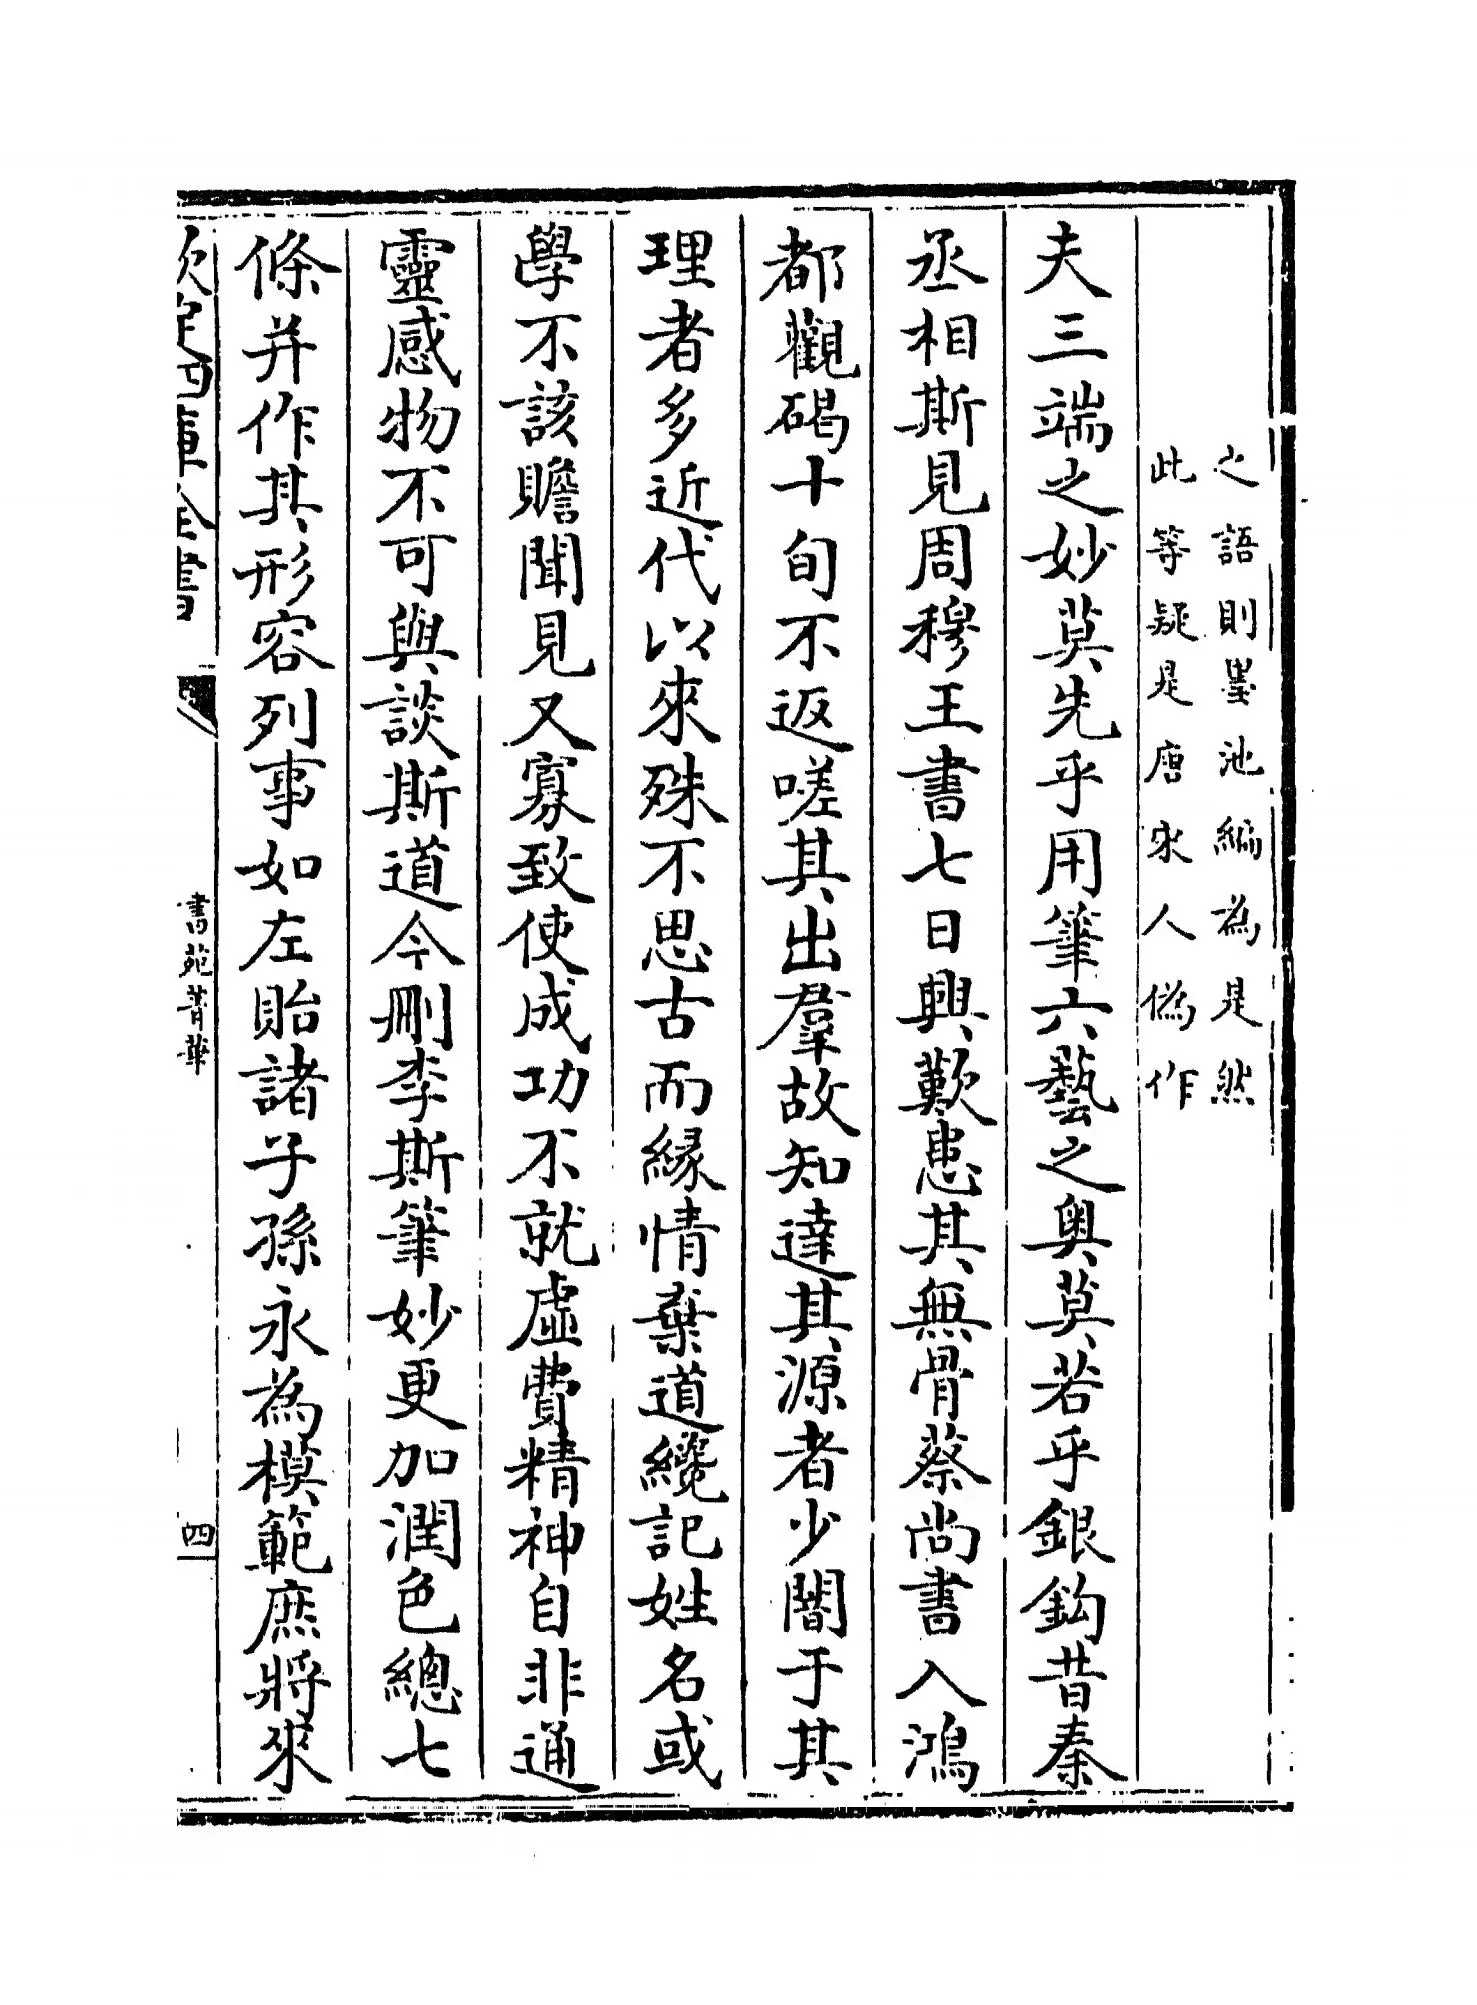 之語則墨池編為是然
此等疑是唐宋人偽作
夫三端之妙莫先乎用筆六藝之奥莫若乎銀鈎昔秦
丞相斯見周穆王書七日興歎患其無骨蔡尚書入鴻
都觀碣十旬不返嗟其出羣故知達其源者少闇于其
理者多近代以來殊不思古而緣情棄道纔記姓名或
學不該贍聞見又寡致使成功不就虚費精神自非通
靈感物不可與談斯道今刪李斯筆妙更加潤色總七
條并作其形容列事如左貽諸子孫永為模範庶將來
欽定四庫全書
書苑菁華
四